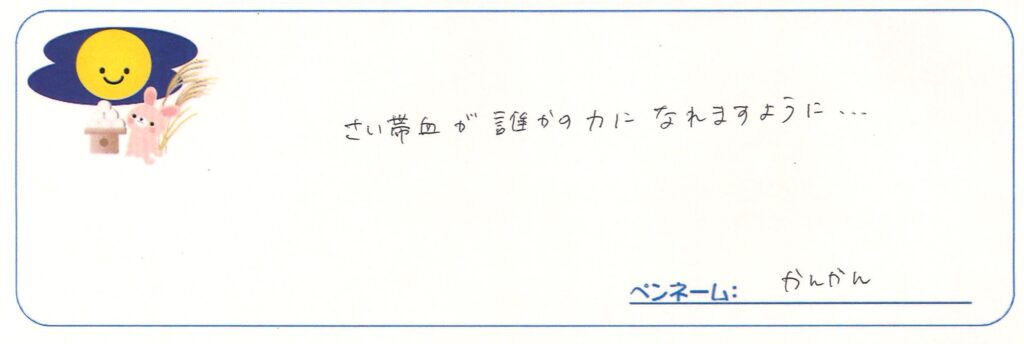 さい帯血が誰かの力になれますように...
ペンネーム: かんかん